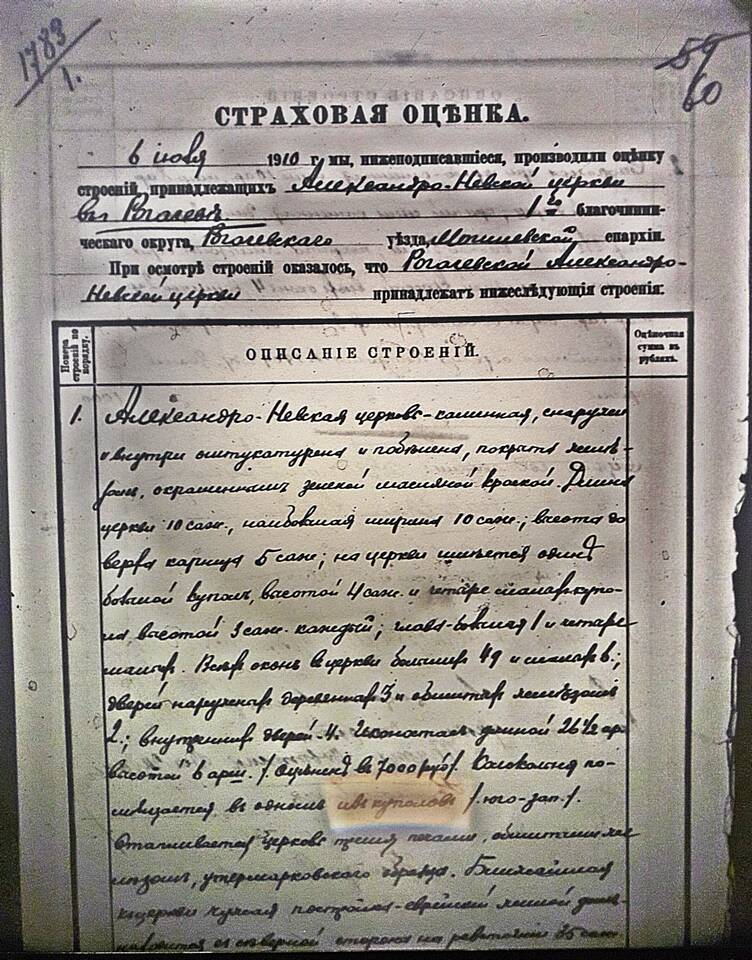 1783
1.
59
60
СТРАХОВАЯ ОЦѢНКА.
6 іюня 1910 г. мы, нижеподписавшіеся, производили оцѣнку
строеній, принадлежащихъ Александро-Невской церкви
въ Рогачевѣ 1го благочинни-
ческаго округа, Рогачевскаго уѣзда, Могилевской епархіи.
При осмотрѣ строеній оказалось, что Рогачевской Александро-
Невской церкви принадлежатъ нижеслѣдующія строенія:
Номера строеній по порядку.
ОПИСАНІЕ СТРОЕНІЙ.
Оцѣночная сумма въ рубляхъ.
1. Александро-Невская церковь-каменная, снаружи
и внутри оштукатурена и побѣлена, покрыта желѣ-
зомъ, окрашеннымъ зеленой масляной краской. Длина
церкви 10 саж., наибольшая ширина 10 саж.; высота до
верха карниза 5 саж.; на церкви имѣется одинъ
большой куполъ, высотой 4 саж. и четыре малыхъ купо-
ла, высотой 3 саж. каждый; глава большая 1 и четыре
малыхъ. Всѣхъ оконъ въ церкви большихъ 49 и малыхъ 6.;
дверей наружныхъ деревянныхъ 3 и обшитыхъ желѣзомъ
2.; внутреннихъ дверей-4. Иконостасъ длиной 26 1/2 ар.
высотой 6 арш. /Оцѣненъ въ 7000 руб/. Колокольня по-
мѣщается въ одномъ изъ куполовъ /юго-зап./.
Отапливается церковь печами, обшитыми же-
лѣзомъ, утермарковскаго образца. Ближайшая
къ церкви чужая постройка-еврейскій жилой домъ-
находится съ сѣверной стороны на разстояніи 35 саж.